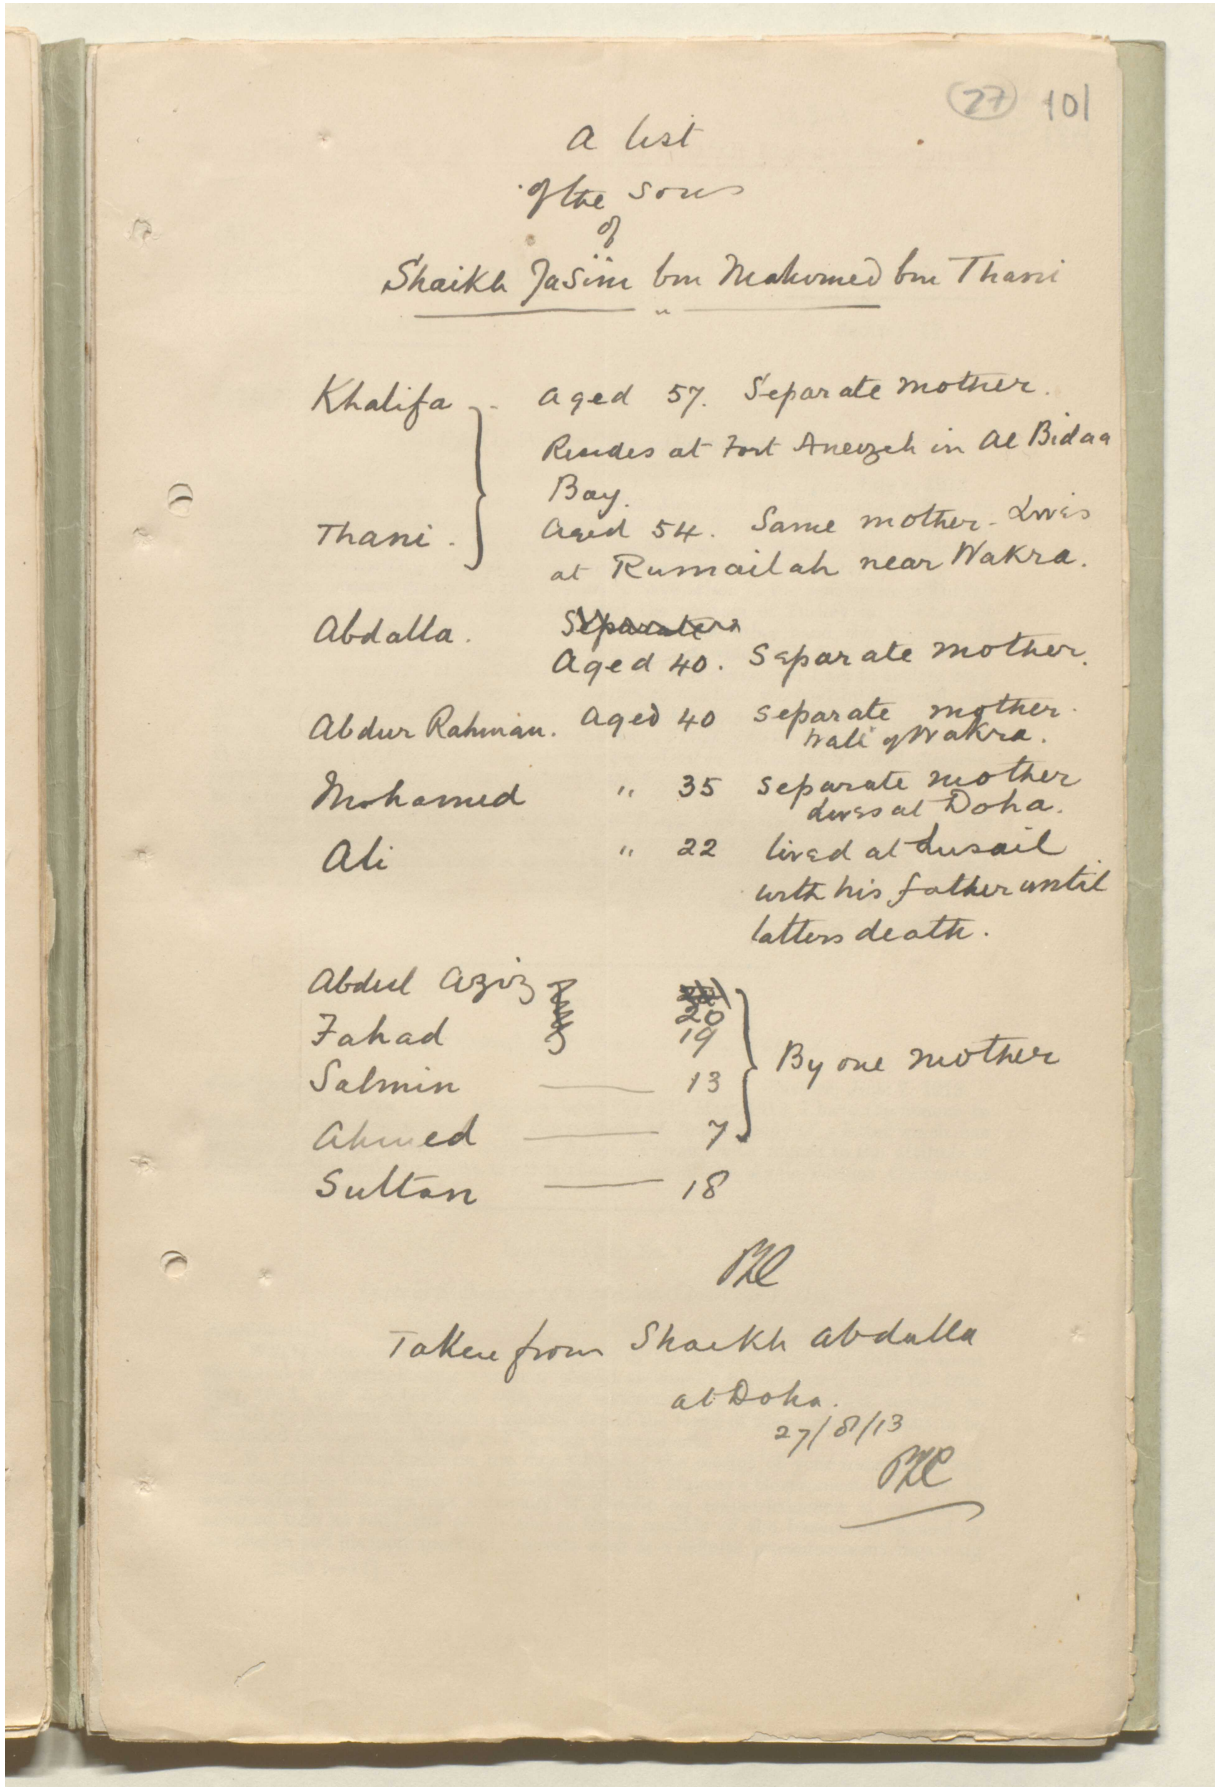 27 101
A list
of the sons
of
Shaikh Jasim bin Mahomed bin Thani
Khalifa - Aged 57. Separate mother.
Resides at Fort Aneizeh in Al Bidaa
Bay.
Thani. Aged 54. Same mother. Lives
at Rumailah near Wakra.
Abdalla. Separate
Aged 40. Separate mother.
Abdur Rahman. Aged 40 separate mother.
Wali of Wakra.
Mohamed " 35 separate mother
Lives at Doha.
Ali " 22 lived at Lusail
with his father until
latters death.
Abdul Aziz 20
Fahad 19
By one mother
Salmin — 13
Ahmed — 7
Sultan — 18
Taken from Shaikh Abdalla
at Doha.
27/8/13